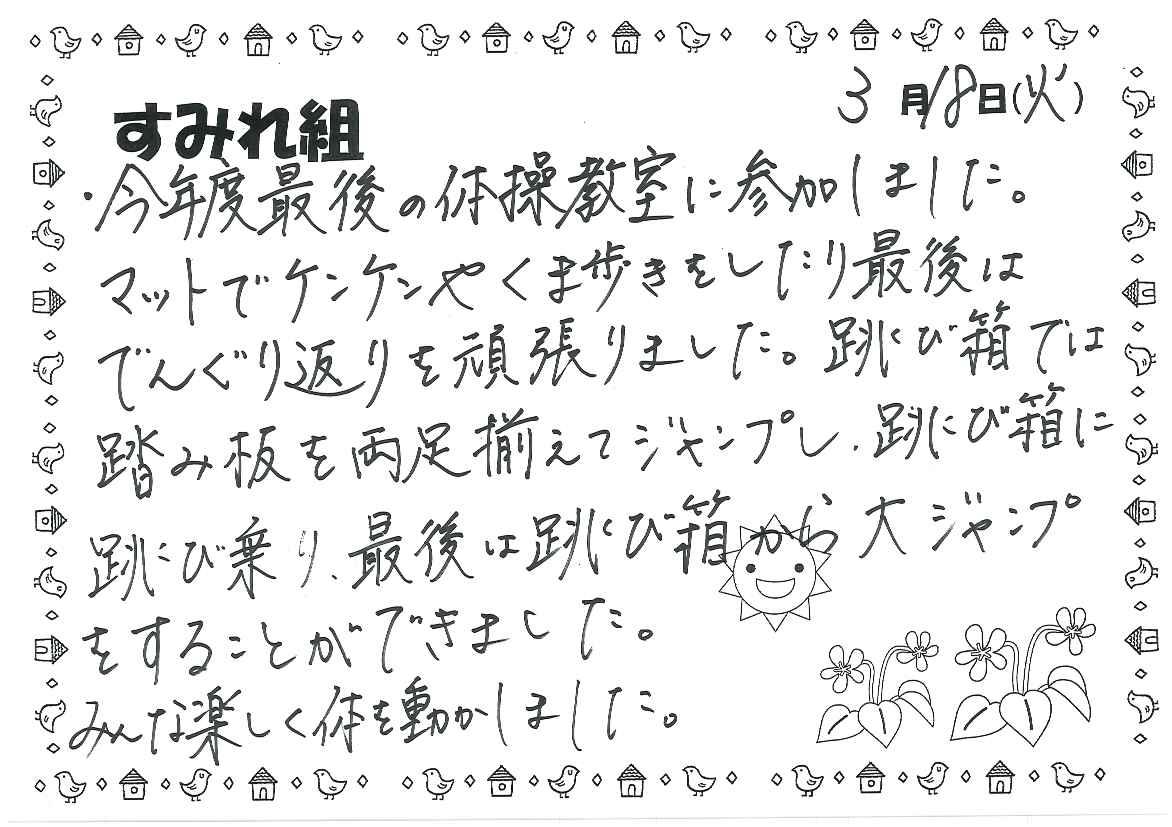 3月18日(火)
すみれ組
・今年度最後の体操教室に参加しました。
マットでケンケンやくま歩きをしたり最後は
でんぐり返りを頑張りました。跳び箱では
踏み板を両足揃えてジャンプし、跳び箱に
跳び乗り、最後は跳び箱から大ジャンプ
をすることができました。
みんな楽しく体を動かしました。